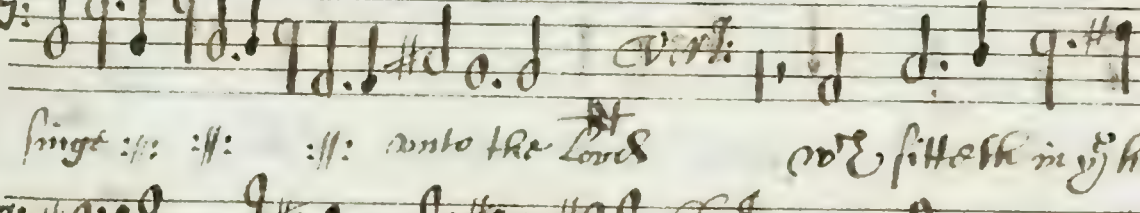 Vers:
singe :||: :||: :||: unto the Lord wch sitteth in